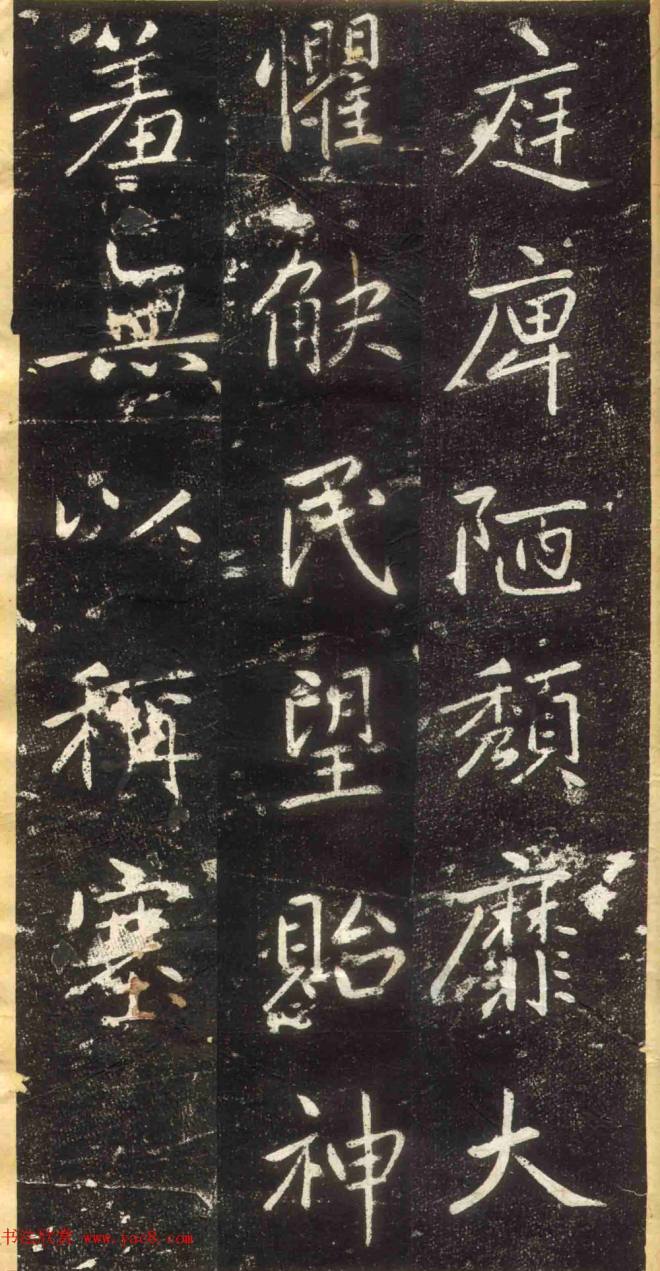 庭庳陋頹靡大
懼觖民望貽神
羞無以稱塞
书法欣赏 www.yac8.com